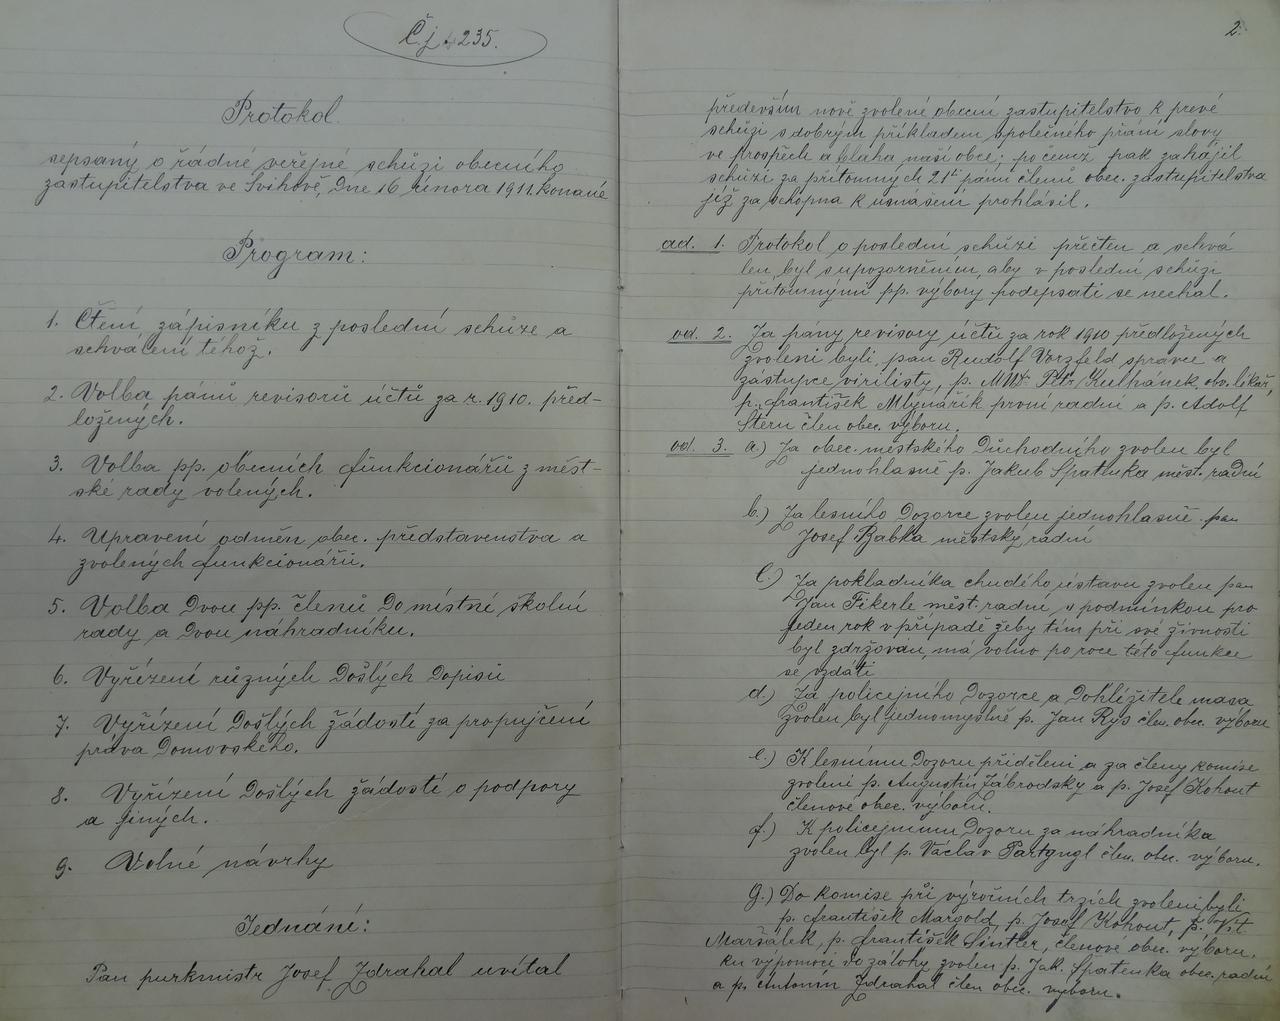 Č.j. 4235.
Protokol
sepsaný o řádné veřejné schůzi obecního
zastupitelstva ve Švihově, Dne 16 února 1911. konané
Program:
1. Čtení zápisníku z poslední schůze a
schválení téhož.
2. Volba pánů revisorů účtů za r. 1910. před-
ložených.
3. Volba pp. obecních funkcionářů z měst-
ské rady volených.
4. Upravení odměn obec. představenstva a
zvolených funkcionářů.
5. Volba Dvou pp. členů Do místné školní
rady a Dvou náhradníku.
6. Vyřízení různých Došlých Dopisů
7. Vyřízení Došlých žádostí za propujčení
práva Domovského.
8. Vyřízení Došlých žádostí o podpory
a jiných.
9. Volné návrhy
Jednání:
Pan purkmistr Josef Zdrahal uvítal
2.
především nově zvolené obecní zastupitelstvo k prvé
schůzi s dobrým příkladem společného přání slovy
ve prospěch a blaha naší obce; po čemž pak zahájil
schůzi za přítomných 21ti pánů členů obec. zastupitelstva
jíž za schopna k usnášení prohlásil.
ad. 1. Protokol o poslední schůzi přečten a schvá
len byl s upozorněním, aby v poslední schůzi
přítomnými pp. výbory podepsati se nechal.
ad. 2. Za pány revisory účtů za rok 1910 předložených
zvoleni byli, pan Rudolf Vorzfeld správce a
zástupce virilisty, p. MUDr. Petr Kulhánek, obv. lékař,
p. František Mlynářík první radní a p. Adolf
Stern člen obec. výboru.
ad. 3. a.) Za obec. městského Důchodního zvolen byl
jednohlasně p. Jakub Špatenka měst. radní
b.) Za lesního Dozorce zvolen jednohlasně pan
Josef Babka městský radní
c.) Za pokladníka chudého ústavu zvolen pan
Jan Fikerle měst. radní s podmínkou pro
jeden rok v případě žeby tím při své živnosti
byl zdržován, má volno po roce této funkce
se vzdáti
d.) Za policejního Dozorce a Dohlížitele masa
zvolen byl jednomyslně p. Jan Rys člen. obec. výboru
e.) K lesnímu Dozoru přiděleni a za členy komise
zvoleni p. Augustin Zábrodský a p. Josef Kohout
členové obec. výboru.
f.) K policejnímu Dozoru za náhradníka
zvolen byl p. Václav Partyngl člen. obec. výboru.
g.) Do komise při výročních trzích zvoleni byli
p. František Margold, p. Josef Kohout, p. Vít
Maršálek, p. František Sintler, členové obec. výboru.
ku výpomoci do zálohy zvolen p. Jak. Špatenka obec. radní
a p. Antonin Zdrahal člen obec. výboru.